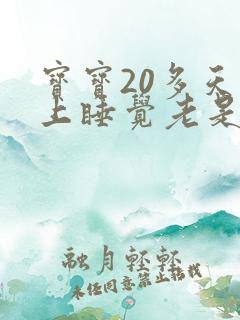 寶寶20多天
上睡覺老是
融月輕輕
未经同意禁止搭载